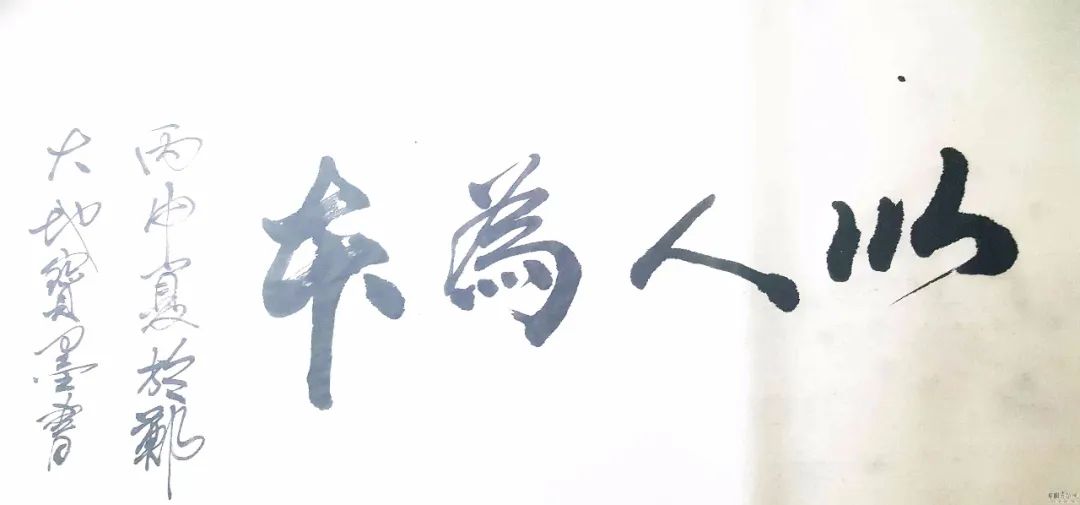 以人為本
丙申夏於鄭
大地寶墨書